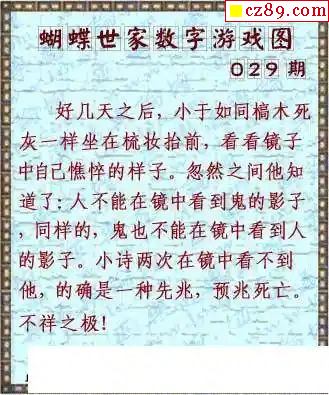 cz89.com
蝴蝶世家数字游戏图
029期
好几天之后，小于如同槁木死
灰一样坐在梳妆抬前，看看镜子
中自己憔悴的样子。忽然之间他知
道了：人不能在镜中看到鬼的影子
，同样的，鬼也不能在镜中看到人
的影子。小诗两次在镜中看不到
他，的确是一种先兆，预兆死亡。
不祥之极！